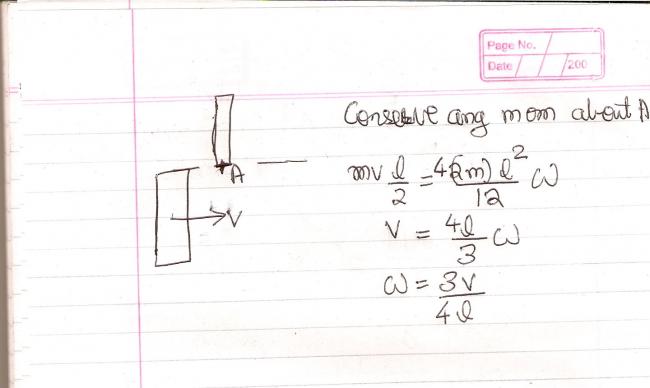 Page No.
Date / / /200
Conserve ang mom about A
mv l/2 = 4(2m) l²/12 ω
A
V
V = 4l/3 ω
ω = 3V/4l